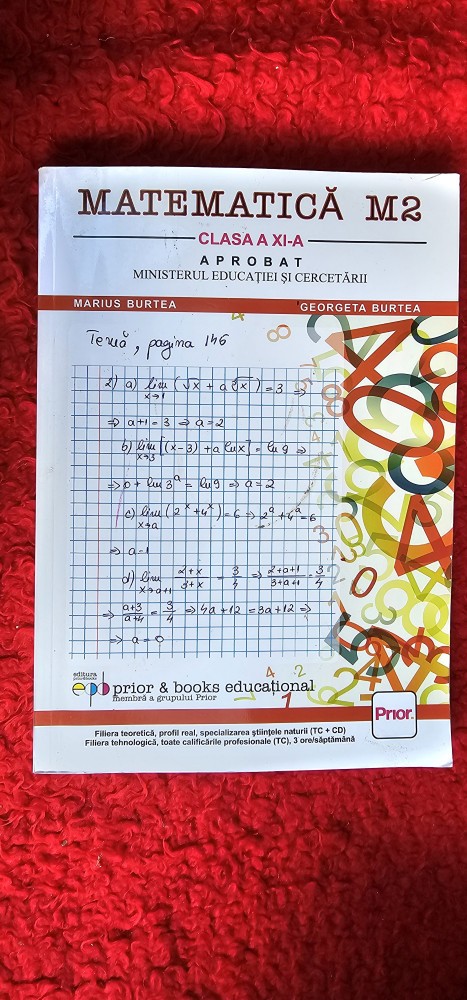 MATEMATICĂ M2
CLASA A XI-A
APROBAT
MINISTERUL EDUCAȚIEI ȘI CERCETĂRII
MARIUS BURTEA GEORGETA BURTEA
Temă, pagina 146
2) a) lim x→1 (√x + a ∛x) = 3 ⇒
⇒ a+1 = 3 ⇒ a = 2
b) lim x→3 [(x-3) + a ln x] = ln 9 ⇒
⇒ 0 + ln 3^a = ln 9 ⇒ a = 2
c) lim x→a (2^x + 4^x) = 6 ⇒ 2^a + 4^a = 6
⇒ a = 1
d) lim x→a+1 (2+x)/(3+x) = 3/4 ⇒ (2+a+1)/(3+a+1) = 3/4
⇒ (a+3)/(a+4) = 3/4 ⇒ 4a+12 = 3a+12 ⇒
⇒ a = 0
editura
prior&books
epb prior & books educațional
membră a grupului Prior
Prior
Filiera teoretică, profil real, specializarea științele naturii (TC + CD)
Filiera tehnologică, toate calificările profesionale (TC), 3 ore/săptămână